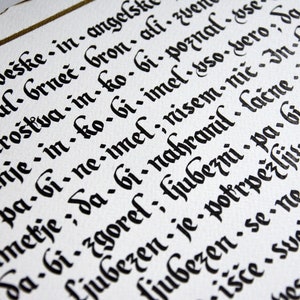 eške · in · angelske
al · brneč · bron · ali · zvene
eroštva · in · ko · bi · poznal · vse
nje · in · ko · bi · imel · vso · vero ; da
pa · bi · ne · imel ; nisem · nič · In
metje ; da · bi · nahranil · lačne
da · bi · zgorel ; ljubezni · pa · bi
ljubezen · je · potrpežlji
ljubezen · se · ne
išče · sv